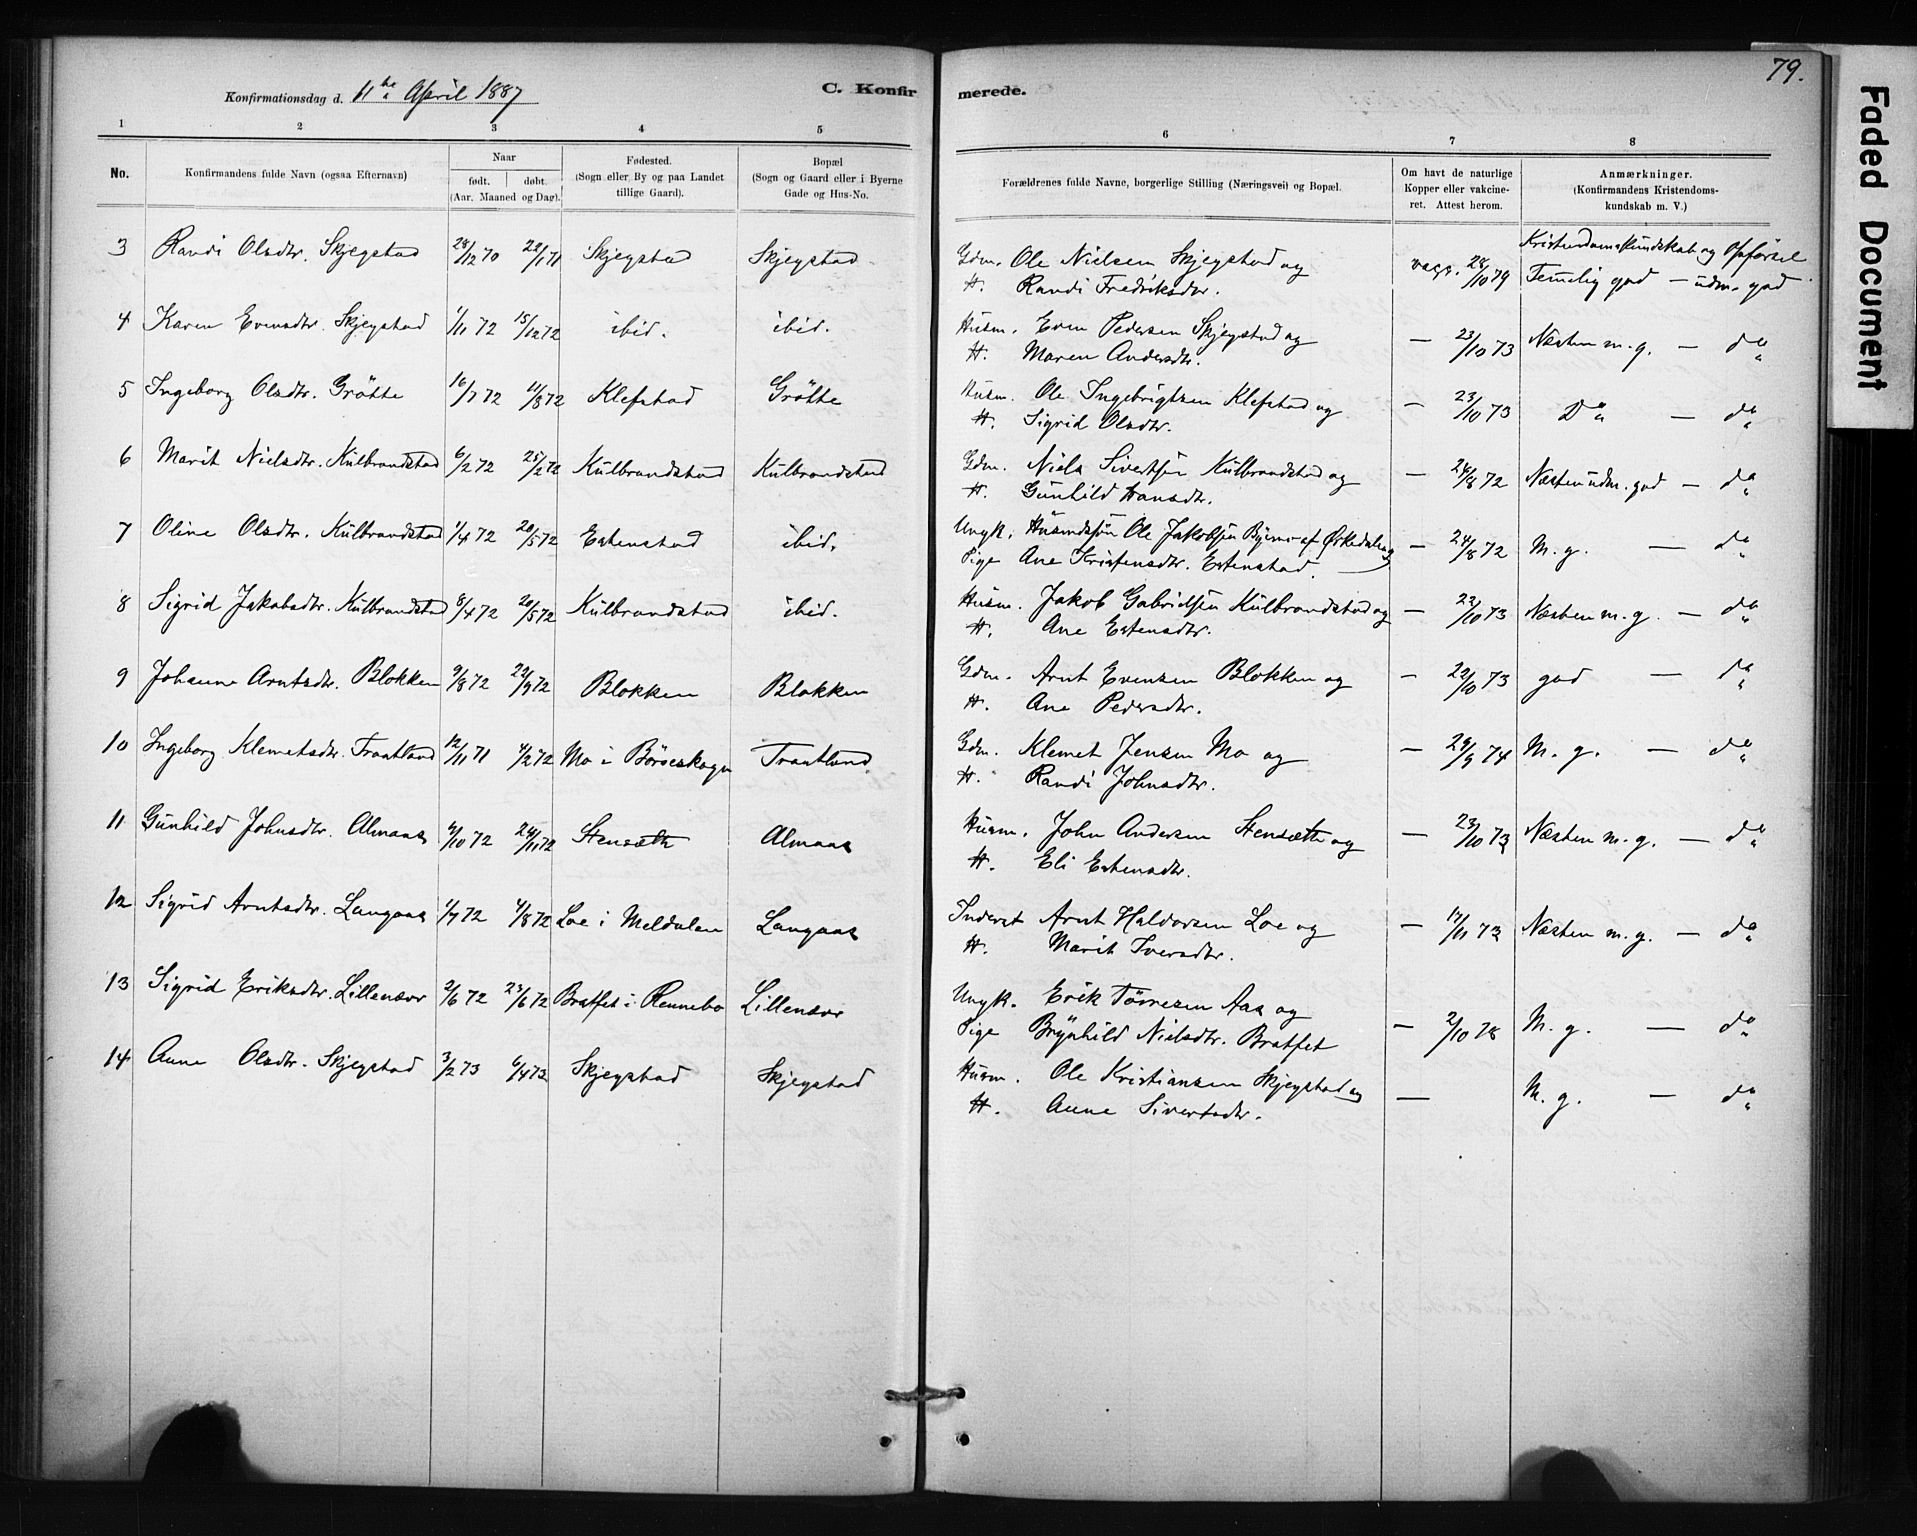 79.
Faded Document
Konfirmationsdag d. 11te April 1887
C. Konfirmerede.
1 2 3 4 5 6 7 8
No.
Konfirmandens fulde Navn (ogsaa Efternavn)
Naar
født. døbt.
(Aar. Maaned og Dag).
Fødested.
(Sogn eller By og paa Landet
tillige Gaard).
Bopæl
(Sogn og Gaard eller i Byerne
Gade og Hus-No.
Forældrenes fulde Navne, borgerlige Stilling (Næringsvei) og Bopæl.
Om havt de naturlige
Kopper eller vakcine-
ret. Attest herom.
Anmærkninger.
(Konfirmandens Kristendoms-
kundskab m. V.)
Kristendomskundskab og Opførsel
3 Randi Olsdtr. Skjegstad 28/12 70 22/1 71 Skjegstad Skjegstad Gdm. Ole Nielsen Skjegstad og vacc. 28/10 79 Temelig god — udm. god
H. Randi Fredriksdtr.
4 Karen Evensdtr. Skjegstad 1/11 72 15/12 72 ibid. ibid. Husm. Even Pedersen Skjegstad og — 23/10 73 Næsten m. g. — do
H. Maren Andersdtr.
5 Ingeborg Olsdtr. Grötte 16/7 72 11/8 72 Klefstad Grötte Husm. Ole Ingebrigtsen Klefstad og — 23/10 73 Do — do
H. Sigrid Olsdtr.
6 Marit Nielsdtr. Kulbrandstad 6/2 72 25/2 72 Kulbrandstad Kulbrandstad Gdm. Niels Sivertsen Kulbrandstad og — 24/8 72 Næsten udm. god — do
H. Gunhild Hansdtr.
7 Oline Olsdtr. Kulbrandstad 1/4 72 20/5 72 Estenstad ibid. Ungk. Husmdsøn Ole Jakobsen Byems af Ørkedalen og — 24/8 72 M. g. — do
Pige Ane Kristensdtr. Estenstad.
8 Sigrid Jakobsdtr. Kulbrandstad 8/4 72 20/5 72 Kulbrandstad ibid. Husm. Jakob Gabrielsen Kulbrandstad og — 22/10 73 Næsten m. g. — do
H. Ane Estensdtr.
9 Johanne Arntsdtr. Blokken 9/8 72 22/9 72 Blokken Blokken Gdm. Arnt Evensen Blokken og — 22/10 73 god — do
H. Ane Pedersdtr.
10 Ingeborg Klemetsdtr. Traatlund 12/11 71 4/2 72 Mo i Børseskogn Traatlund. Gdm. Klemet Jensen Mo og — 29/9 74 M. g. — do
H. Randi Johnsdtr.
11 Gunhild Johnsdtr. Almaas 6/10 72 24/11 72 Stensæth Almaas Husm. John Andersen Stensæth og — 23/10 73 Næsten m. g. — do
H. Eli Estensdtr.
12 Sigrid Arntsdtr. Langaas 1/7 72 4/8 72 Loe i Meldalen Langaas Inderst Arnt Haldorsen Loe og — 17/11 73 Næsten m. g. — do
H. Marit Iversdtr.
13 Sigrid Eriksdtr. Lillenæver 2/6 72 23/6 72 Bratset i Rennebo Lillenæver Ungk. Erik Törresen Aas og — 2/10 78 M. g. — do
Pige Brynhild Nielsdtr. Bratset
14 Anne Olsdtr. Skjegstad 3/2 73 6/4 73 Skjegstad Skjegstad Husm. Ole Kristiansen Skjegstad og — M. g. — do
H. Anne Sivertsdtr.